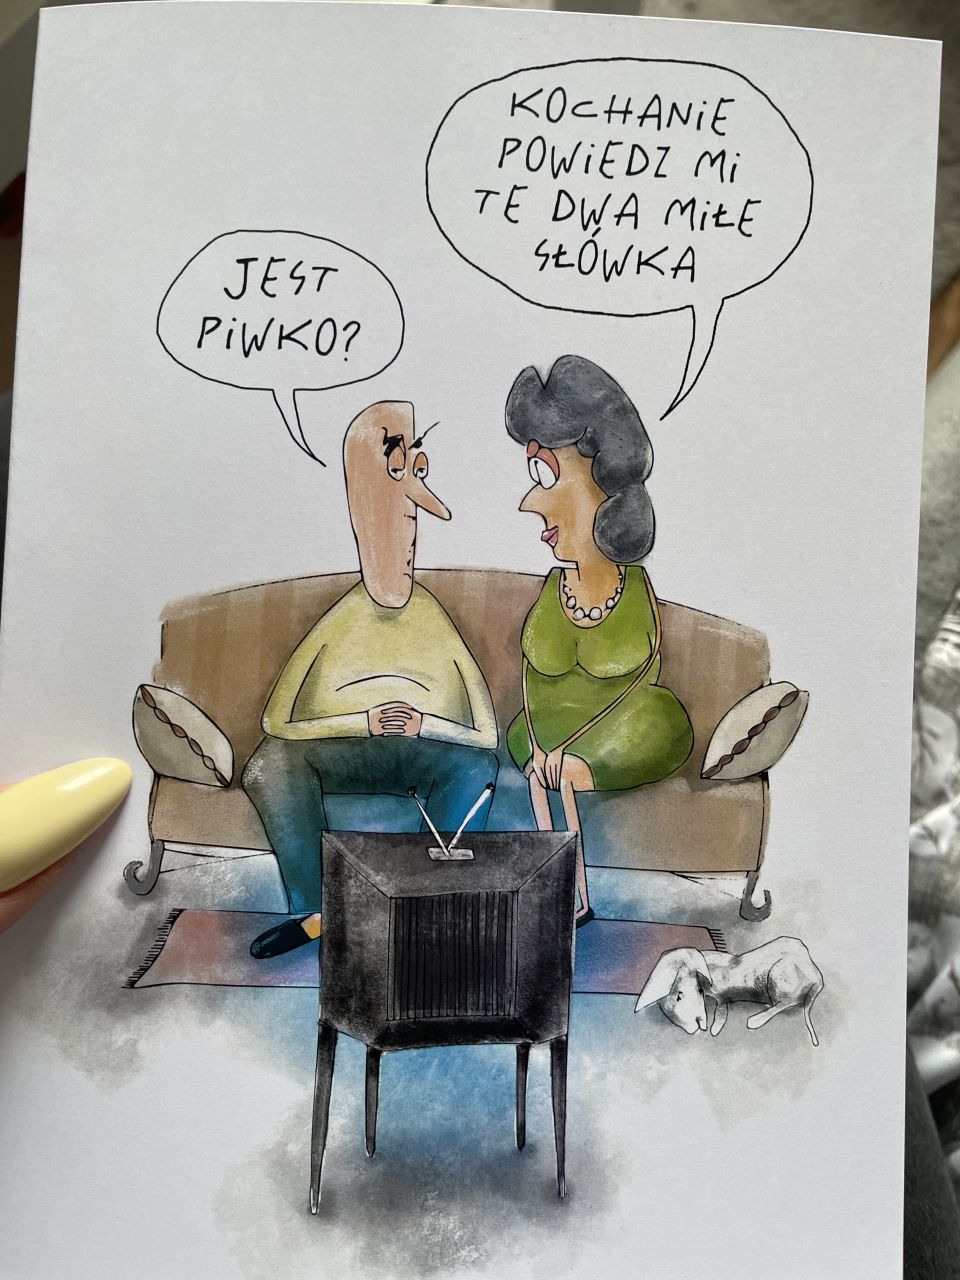 KOCHANiE
POWiEDZ Mi
TE DWA MiŁE
SŁÓWKA
JEST
PiWKO?